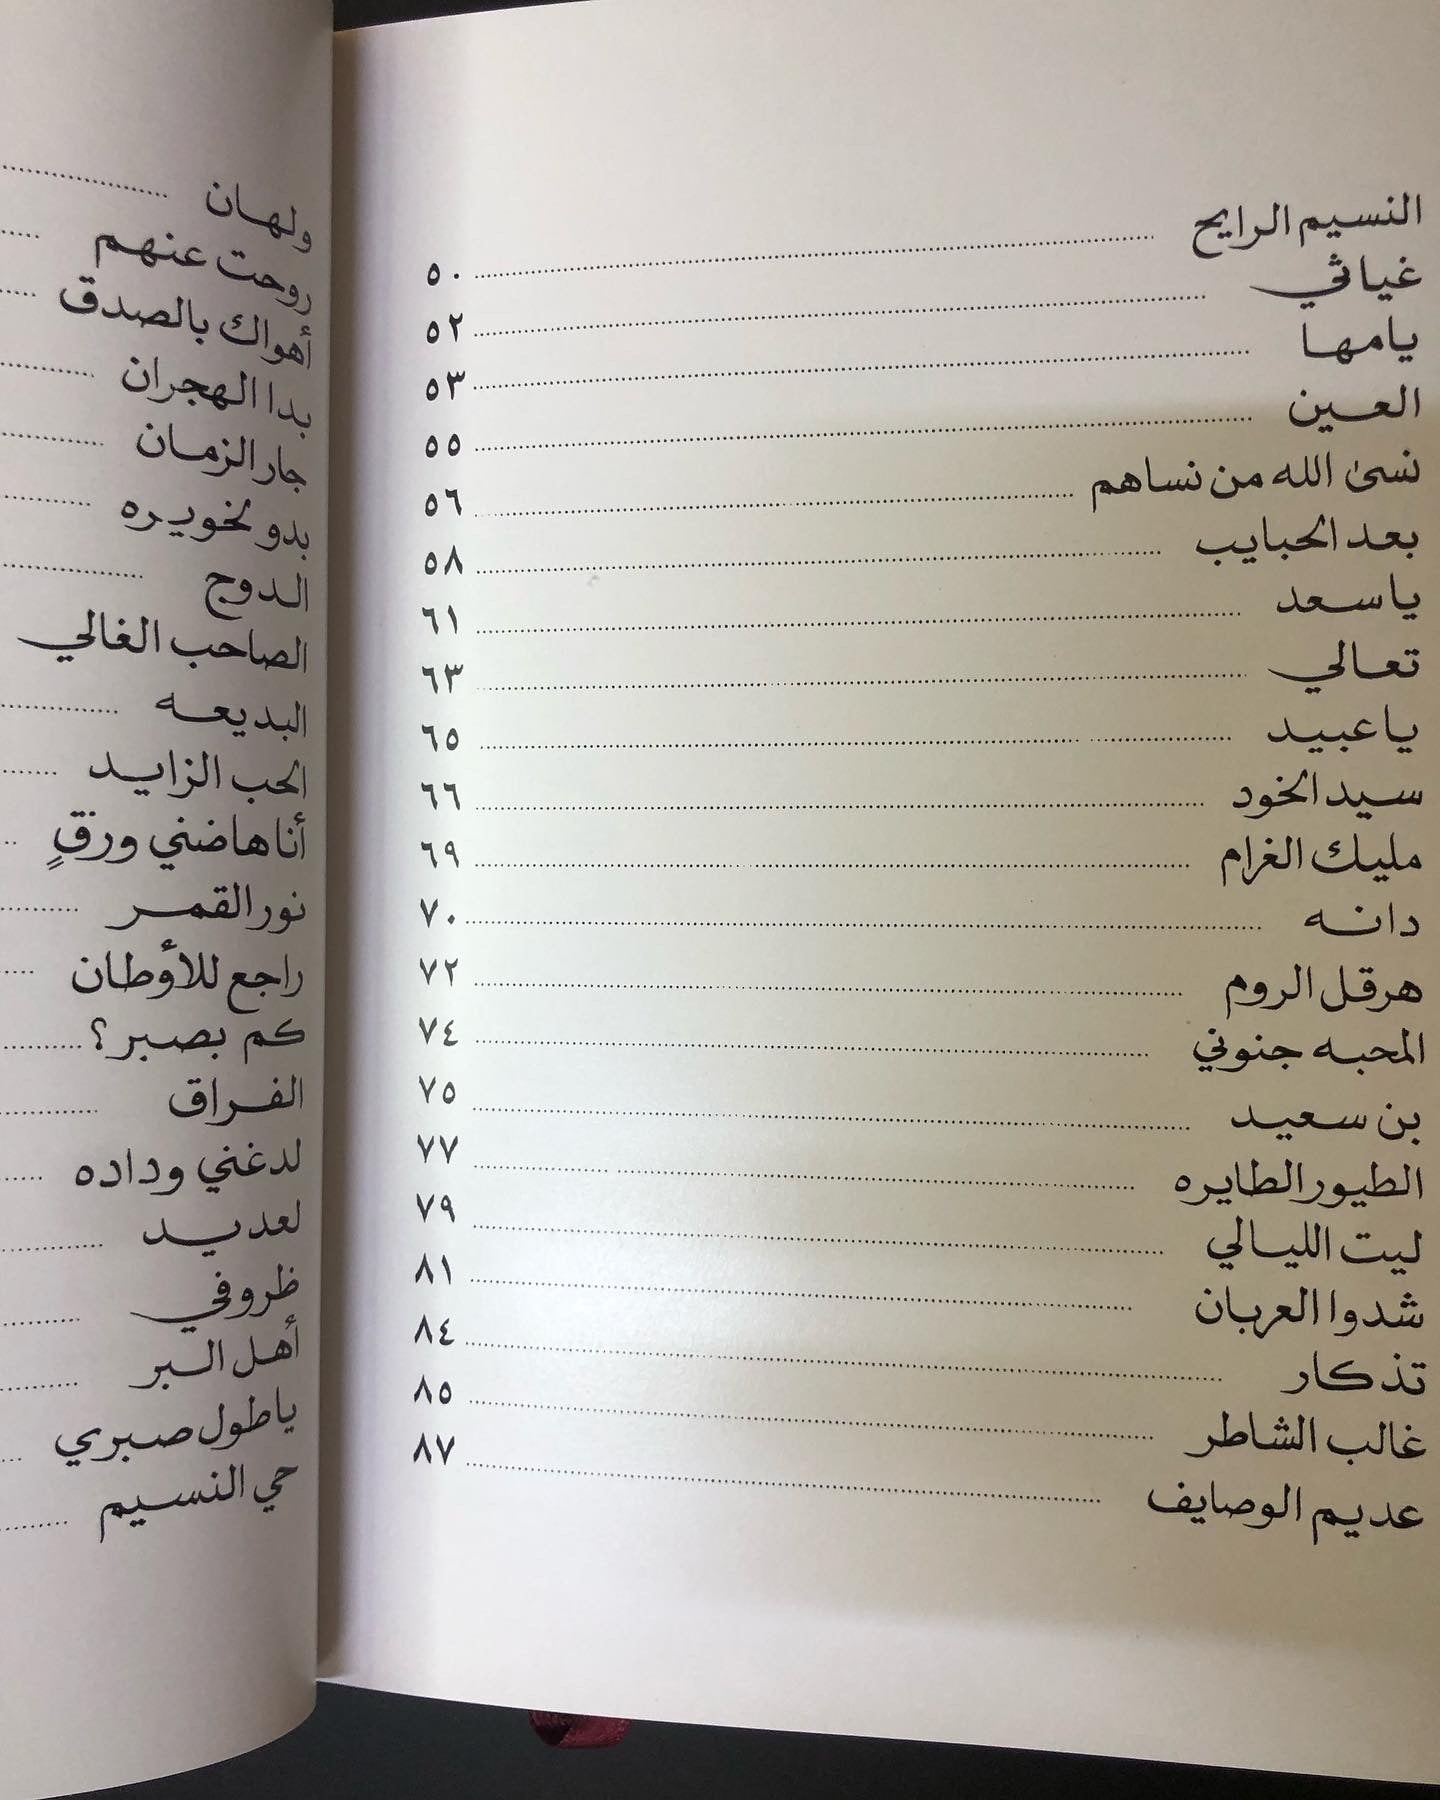 النسيم الرايح ٥٠
غياثي ٥٢
يامها ٥٣
العين ٥٥
نسى الله من نساهم ٥٦
بعد الحبايب ٥٨
ياسعد ٦١
تعالي ٦٣
ياعبيد ٦٥
سيد الخود ٦٦
مليك الغرام ٦٩
دانه ٧٠
هرقل الروم ٧٢
المحبه جنوني ٧٤
بن سعيد ٧٥
الطيور الطايره ٧٧
ليت الليالي ٧٩
شدوا العربان ٨١
تذكار ٨٤
غالب الشاطر ٨٥
عديم الوصايف ٨٧
ولهان
روحت عنهم
أهواك بالصدق
بدا الهجران
جار الزمان
بدو لخويره
الدوج
الصاحب الغالي
البديعه
الحب الزايد
أنا هاضني ورقٍ
نور القمر
راجع للأوطان
كم بصبر؟
الفراق
لدغني وداده
لعديد
ظروفي
أهل البر
ياطول صبري
حي النسيم